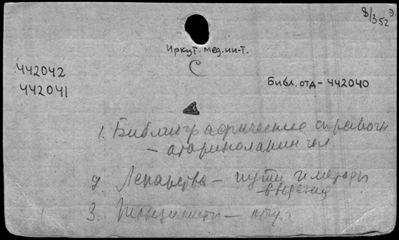 8/352 Э.
Иркут. мед. ин-т.
С
442042
442041
Библ. отд-442040
1. Библиографические справочн
- оториноларингол
2. Лекарства - пути и методы
введения
3.